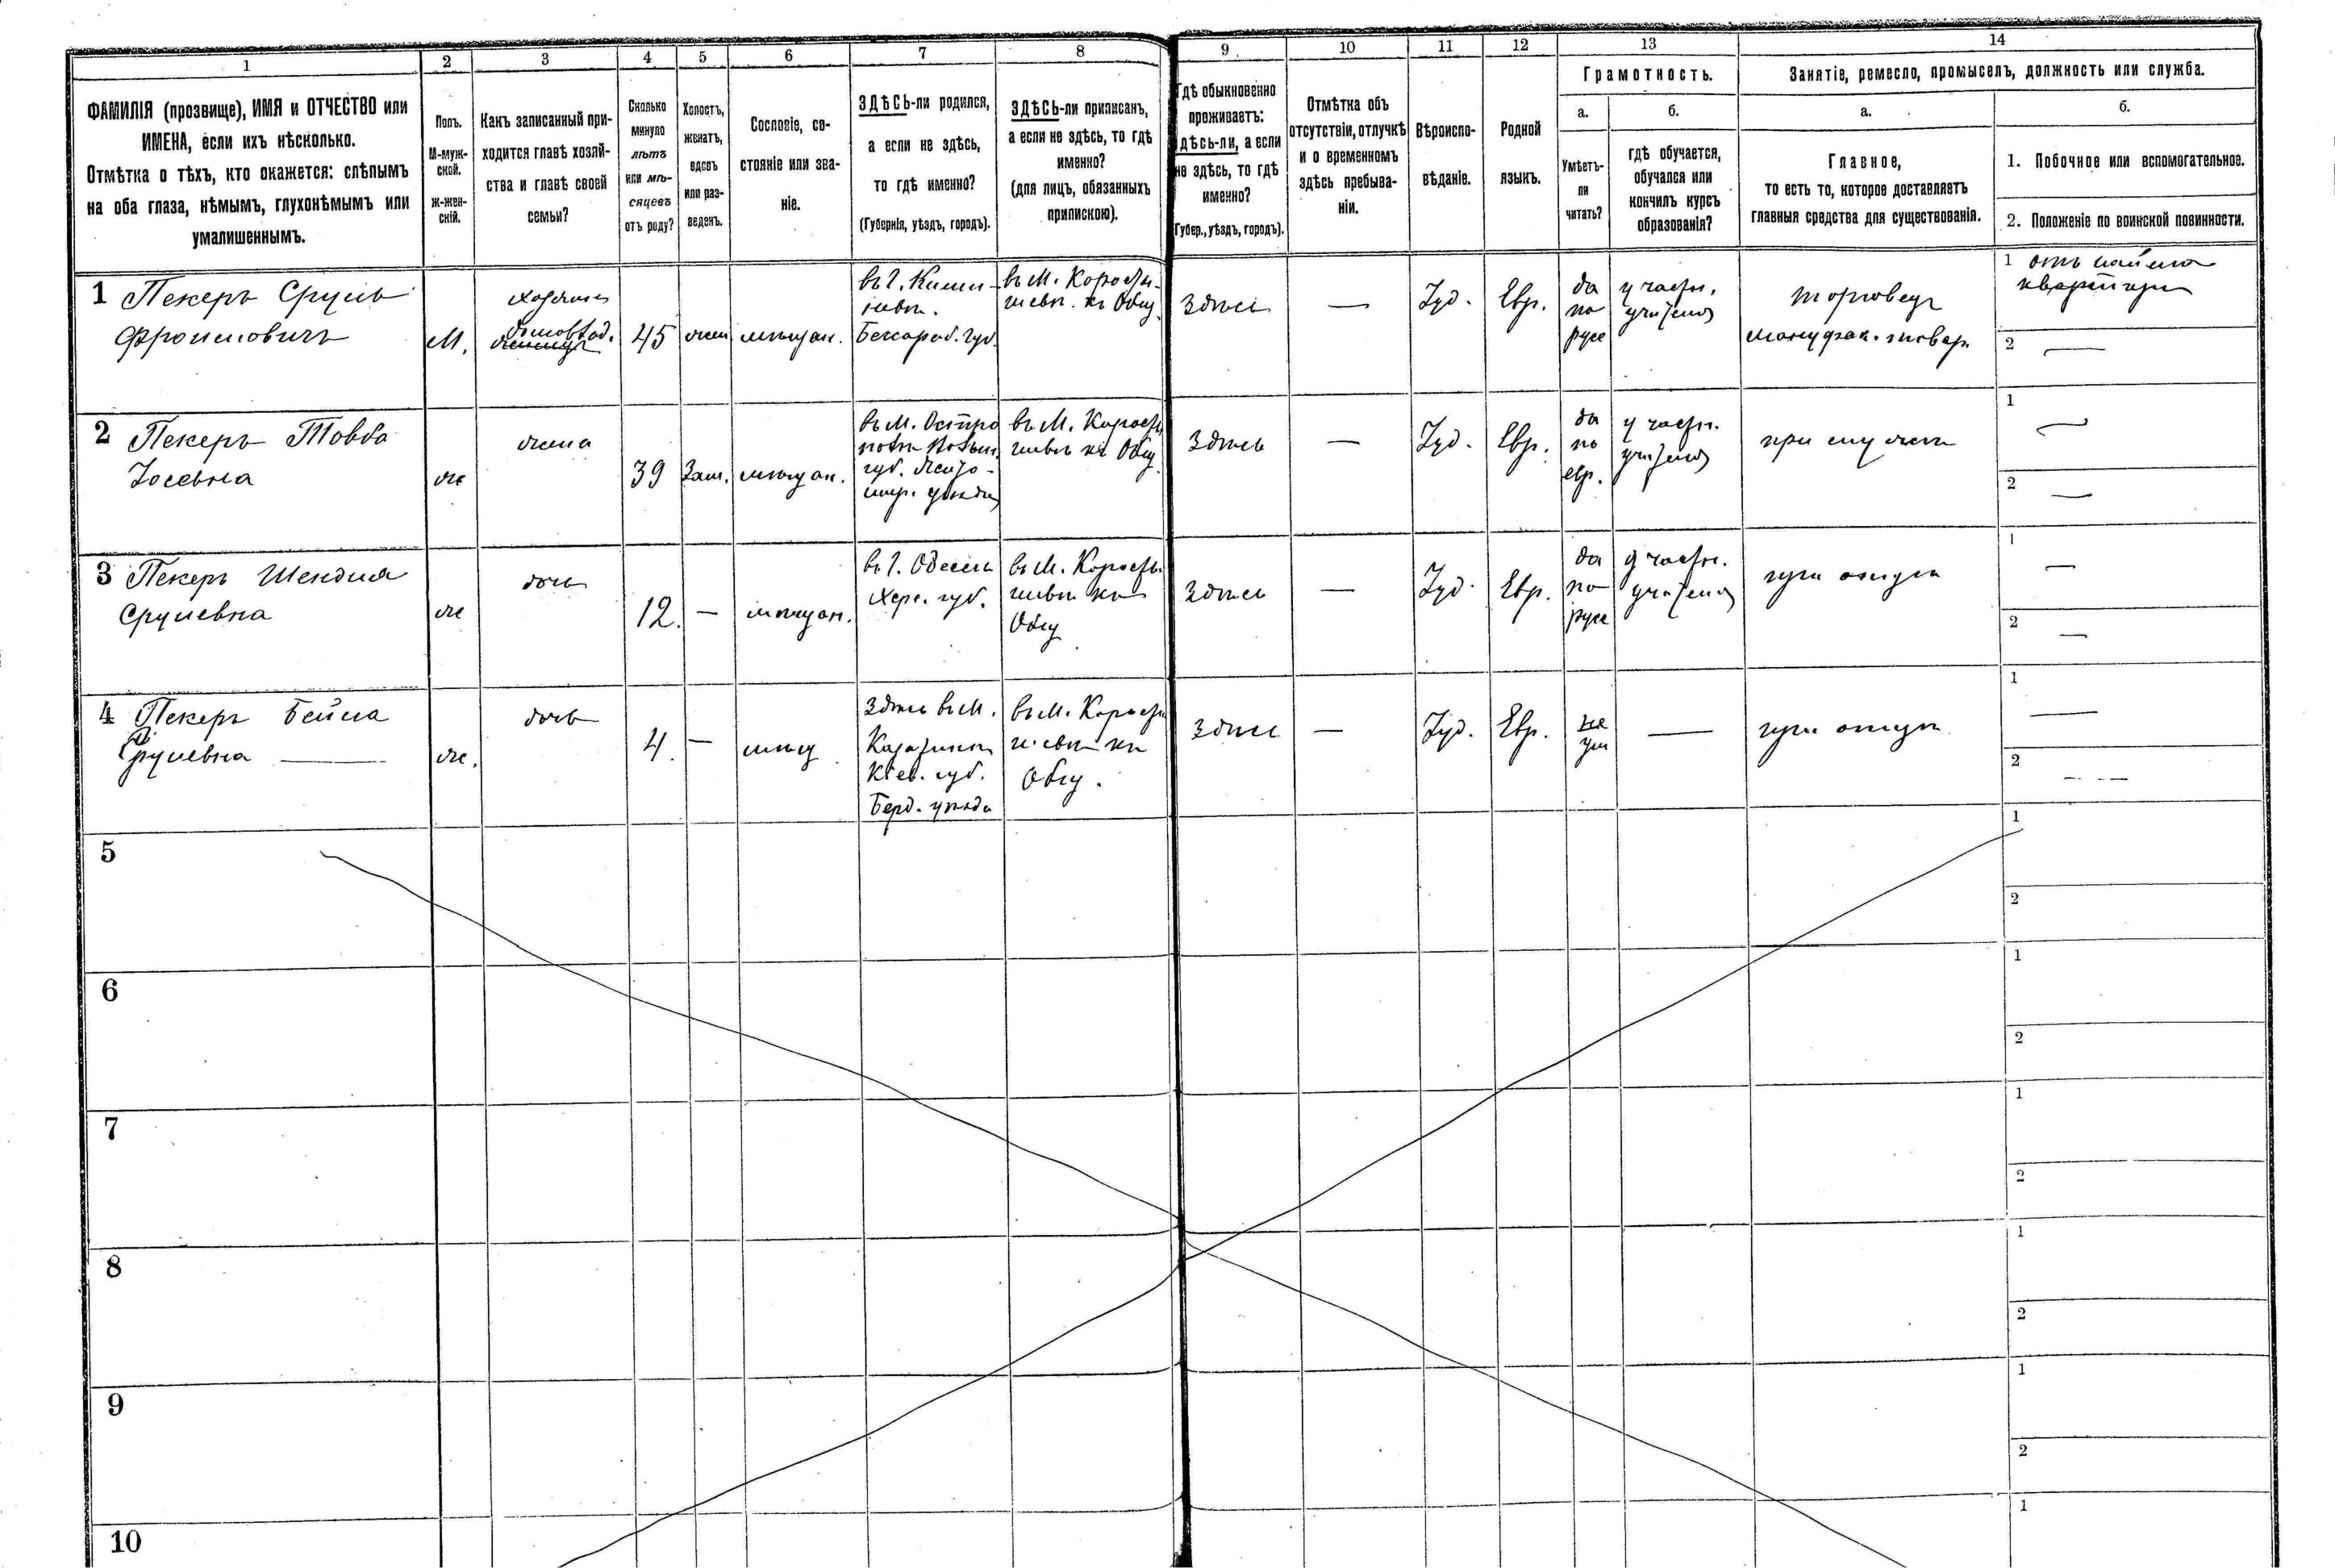 1
2
3
4
5
6
7
8
9
10
11
12
13
14
ФАМИЛІЯ (прозвище), ИМЯ и ОТЧЕСТВО или
ИМЕНА, если ихъ нѣсколько.
Отмѣтка о тѣхъ, кто окажется: слѣпымъ
на оба глаза, нѣмымъ, глухонѣмымъ или
умалишеннымъ.
Полъ.
М-муж-
ской.
ж-жен-
скій.
Какъ записанный при-
ходится главѣ хозяй-
ства и главѣ своей
семьи?
Сколько
минуло
лѣтъ
или мѣ-
сяцевъ
отъ роду?
Холостъ,
женатъ,
вдовъ
или раз-
веденъ.
Сословіе, со-
стояніе или зва-
ніе.
ЗДѢСЬ-ли родился,
а если не здѣсь,
то гдѣ именно?
(Губернія, уѣздъ, городъ).
ЗДѢСЬ-ли приписанъ,
а если не здѣсь, то гдѣ
именно?
(для лицъ, обязанныхъ
припискою).
Гдѣ обыкновенно
проживаетъ:
здѣсь-ли, а если
не здѣсь, то гдѣ
именно?
(Губер., уѣздъ, городъ).
Отмѣтка объ
отсутствіи, отлучкѣ
и о временномъ
здѣсь пребыва-
ніи.
Вѣроиспо-
вѣданіе.
Родной
языкъ.
Грамотность.
а.
Умѣетъ-
ли
читать?
б.
гдѣ обучается,
обучался или
кончилъ курсъ
образованія?
Занятіе, ремесло, промыселъ, должность или служба.
а.
Главное,
то есть то, которое доставляетъ
главныя средства для существованія.
б.
1. Побочное или вспомогательное.
2. Положеніе по воинской повинности.
1 Пекеръ Сруль
Фроимовичъ
М.
хозяинъ
домовлад.
45
жен
мѣщан.
въ г. Киши-
невѣ.
Бессараб. губ.
въ М. Коросты-
шевѣ. къ Общ.
Здѣсь
—
Іуд.
Евр.
да
по
русс
у частн.
учителя
торговец
мануфак. товар.
1 отъ найма
квартиры
2 —
2 Пекеръ Товба
Іосевна
ж
жена
39
Зам.
мѣщан.
въ М. Остро
полѣ Волын.
губ.
уѣзда
въ М. Коросты
шевѣ къ Общ.
Здѣсь
—
Іуд.
Евр.
да
по
евр.
у частн.
учителя
при мужѣ
1 —
2 —
3 Пекеръ Шендля
Срулевна
ж
дочь
12.
—
мѣщан.
въ г. Одессѣ
Херс. губ.
въ М. Коросты
шевѣ къ
Общ
Здѣсь
—
Іуд.
Евр.
да
по
русс
у частн.
учителя
при отцѣ
1 —
2 —
4 Пекеръ Бейла
Срулевна —
ж.
дочь
4.
—
мѣщ
Здѣсь въ М.
Кіев. губ.
Берд. уѣзда
въ М. Коросты
шевѣ къ
Общ.
Здѣсь
—
Іуд.
Евр.
не
ум
—
при отцѣ
1 —
2 —
5
1
2
6
1
2
7
1
2
8
1
2
9
1
2
10
1